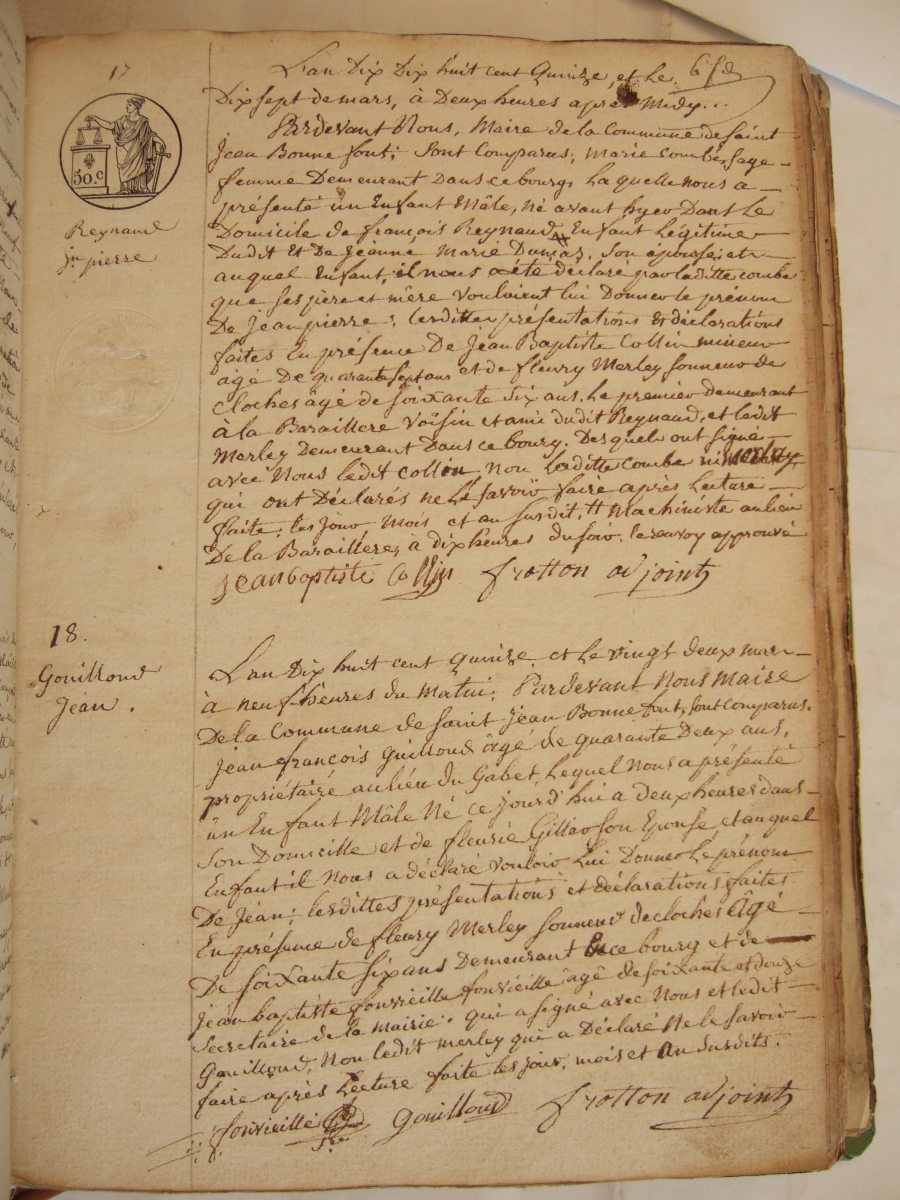 17
50.c
Reynaud
jn pierre
L'an Dix Dix huit cent Quinze, et le
Dix sept de mars, à Deux heures après Midy...
Pardevant Nous, Maire de la Commune de Saint
Jean Bonne font; Sont Comparus; Marie Combe, sage-
femme Demeurant Dans ce bourg, la quelle nous a
présenté un Enfant Mâle, né avant hyer Dans Le
Domicile de françois Reynaud # Enfant Légitime
Dudit Et De Jéanne, Marie Dumas, Son épouse; et
auquel Enfant, il nous a été déclaré par laditte combe
que ses père et mère vouloient lui Donner le prénom
De Jean pierre; lesdittes présentations Et déclarations
faites En présence De Jéan Baptiste Collin mineur
âgé De quarante sept ans et de fleury Merley sonneur de
cloches âgé de soixante six ans. Le premier demeurant
à la Baraillere voisin et ami dudit Reynaud, et ledit
Merley Demeurant Dans ce bourg. Desquels ont signé
avec Nous ledit Collin Non laditte Combe ni Merley,
qui ont Déclarés ne le savoir faire après Lecture
faite, les Jour, Mois, et an susdit, # Machiniste au lieu
De la Baraillere, à dix heures du soir. le renvoy approuvé
Jean baptiste Collin frotton adjoint
18.
Gouilloud
Jéan.
L'an Dix huit cent Quinze, et Le vingt deux mars
à neuf heures du Matin; Pardevant Nous Maire
De la Commune de saint Jean Bonne font, sont Comparus.
Jean françois Guilloud âgé de quarante Deux ans,
propriétaire au lieu du Gabet, Lequel Nous a présenté
ûn Enfant Mâle Né ce jourd'hui a deux heures dans
Son Domicille et de fleurie Gillier son Epouse, et auquel
Enfant il Nous a déclaré vouloir Lui Donner Le prénom
De Jéan; lesdittes présentations et déclarations faites
En présence de fleury Merley sonneur de cloches âgé
De soixante six ans Demeurant ce bourg et de
Jéan baptiste fonvieille fonvieille âgé de soixante et douze
secretaire de la mairie. qui a signé avec Nous et ledit
Gouilloud, Non ledit merley qui a Déclaré Ne le savoir
faire après Lecture faite les jour, mois et An susdits.
fonvieille sre Gouilloud frotton adjoint